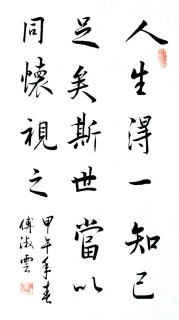 人生得一知己
足矣斯世當以
同懷視之
甲午年春
傅淑雲